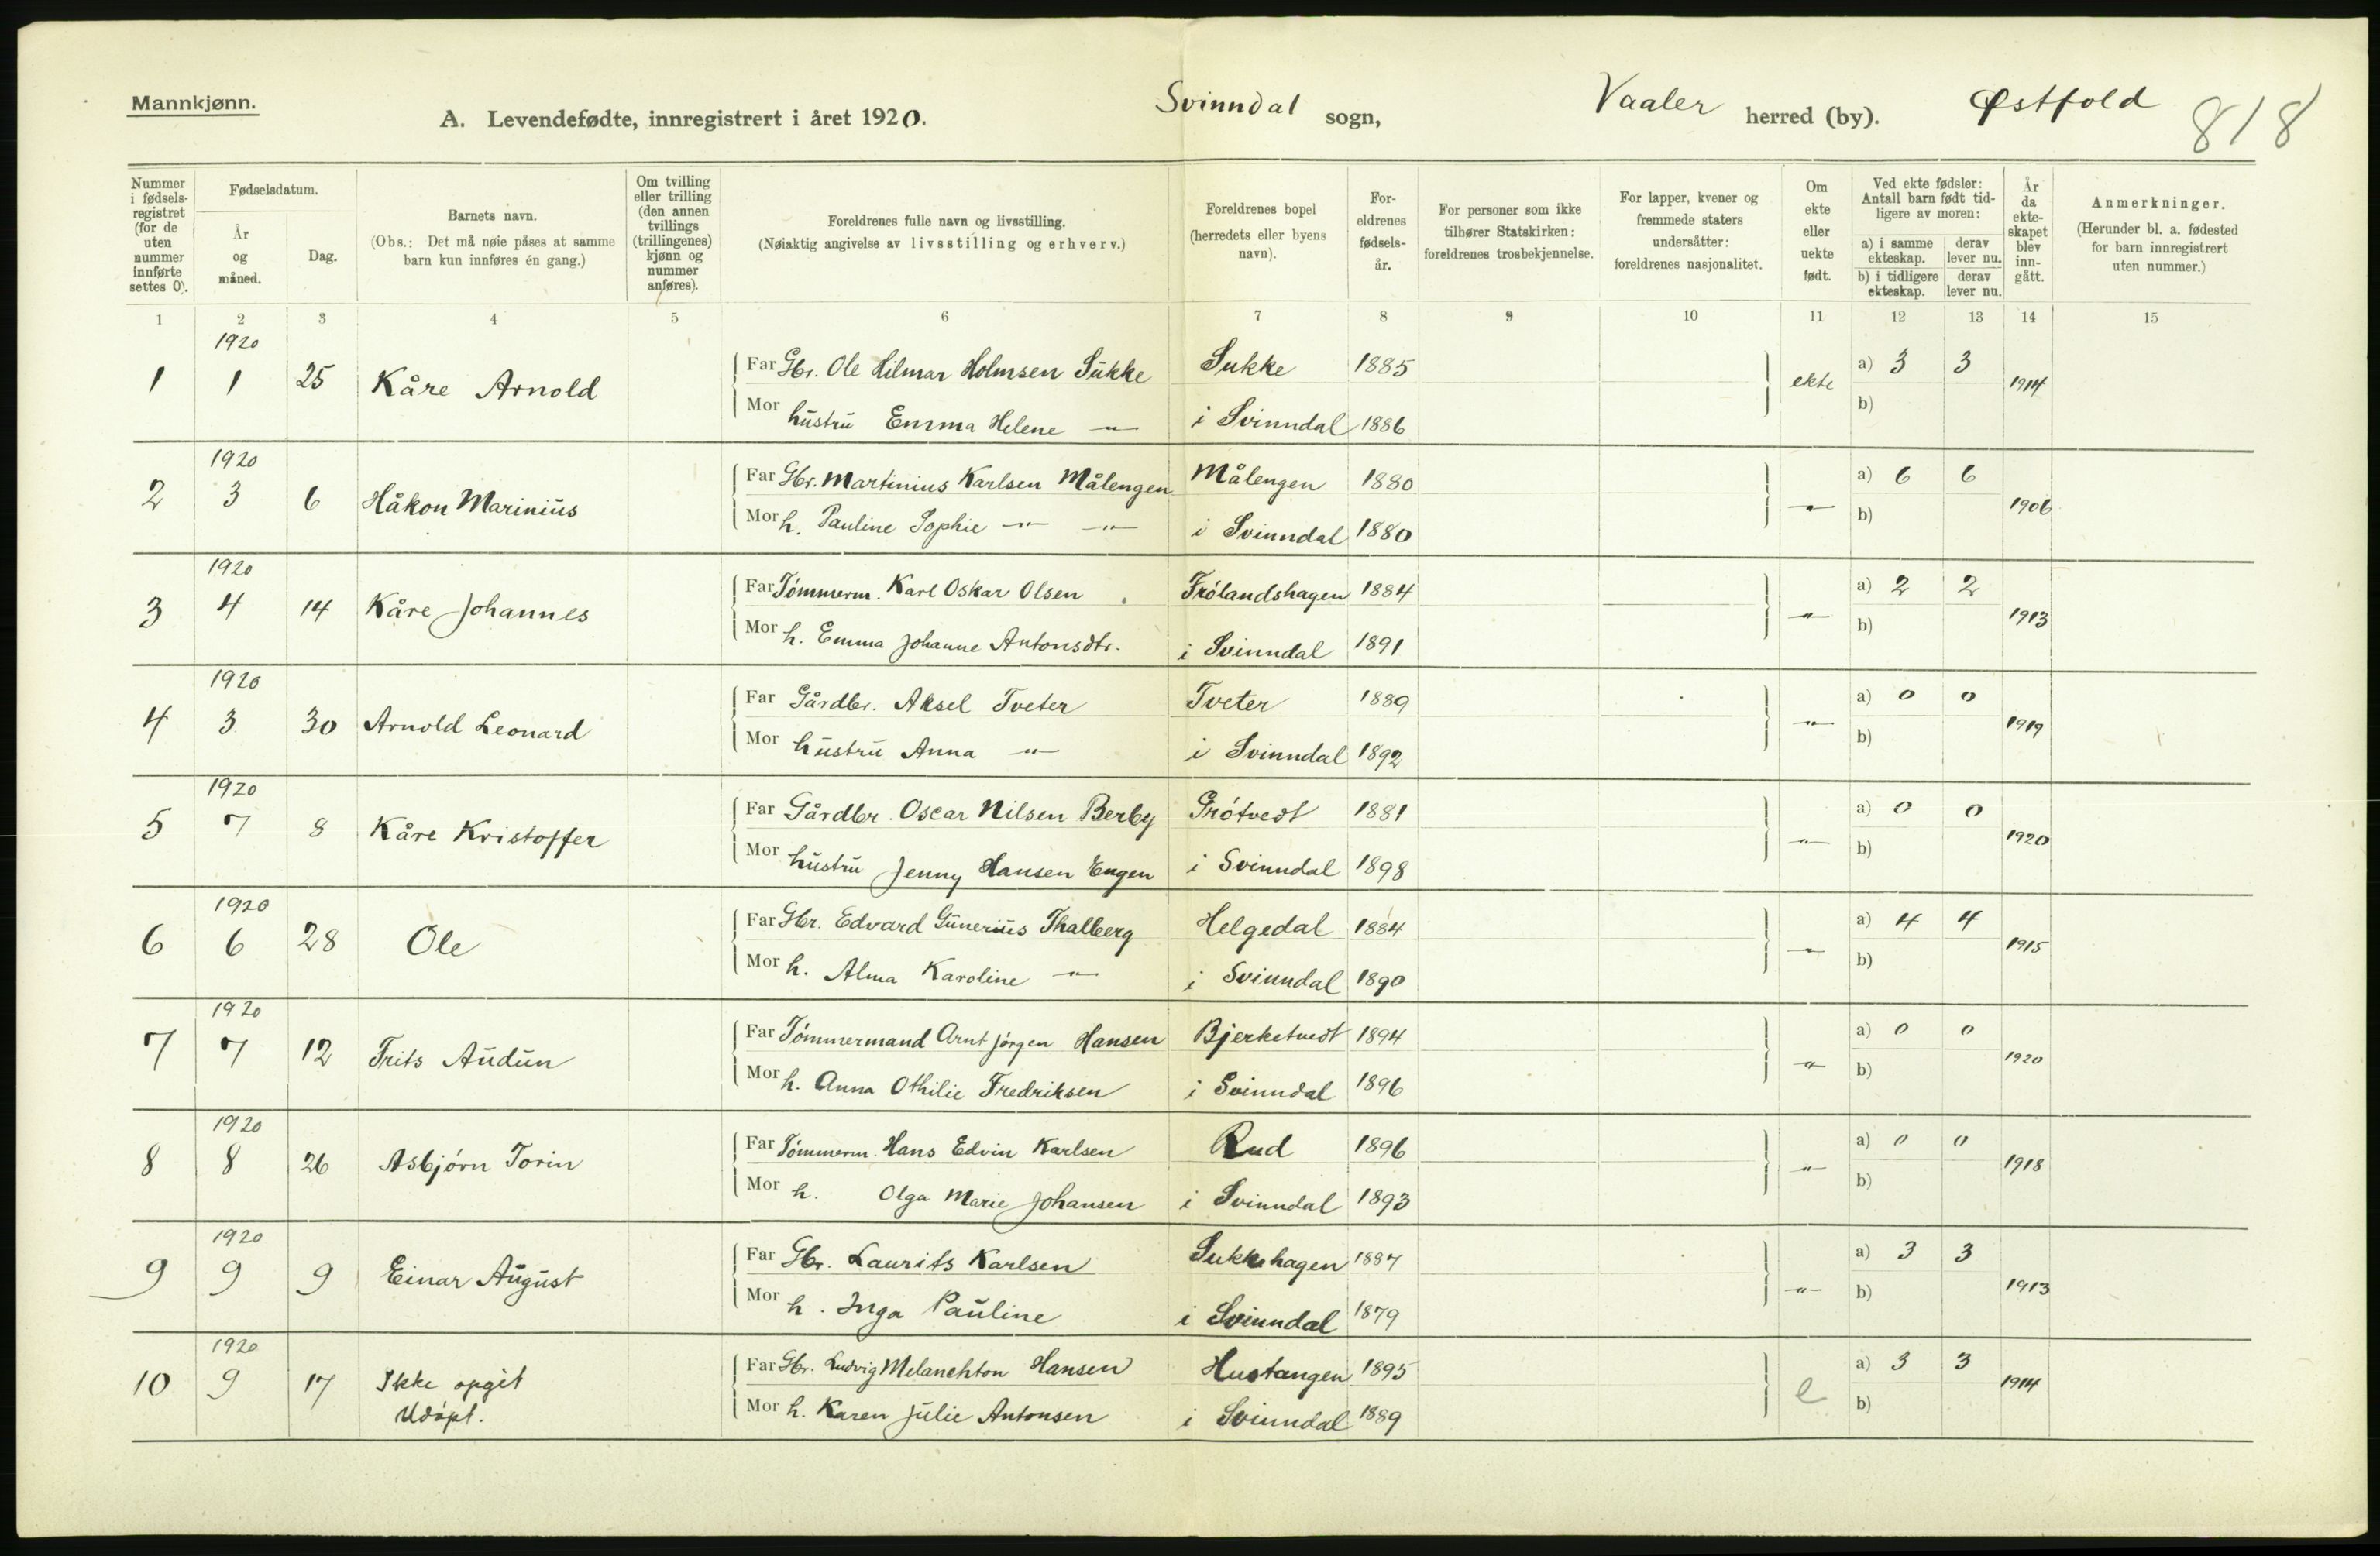 Mannkjønn.
A. Levendefødte, innregistrert i året 1920. Svinndal sogn, Vaaler herred (by). Østfold 818
Nummer i fødsels-registret (for de uten nummer innførte settes 0).
Fødselsdatum.
År og måned.
Dag.
Barnets navn.
(Obs.: Det må nøie påses at samme barn kun innføres én gang.)
Om tvilling eller trilling (den annen tvillings (trillingenes) kjønn og nummer anføres).
Foreldrenes fulle navn og livsstilling.
(Nøiaktig angivelse av livsstilling og erhverv.)
Foreldrenes bopel (herredets eller byens navn).
For-eldrenes fødsels-år.
For personer som ikke tilhører Statskirken: foreldrenes trosbekjennelse.
For lapper, kvener og fremmede staters undersåtter: foreldrenes nasjonalitet.
Om ekte eller uekte født.
Ved ekte fødsler: Antall barn født tid-ligere av moren:
a) i samme ekteskap. derav lever nu.
b) i tidligere ekteskap. derav lever nu.
År da ekte-skapet blev inn-gått.
Anmerkninger.
(Herunder bl. a. fødested for barn innregistrert uten nummer.)
1 2 3 4 5 6 7 8 9 10 11 12 13 14 15
1920
1 1 25 Kåre Arnold Far Gbr. Ole Hilmar Holmsen Sukke Sukke 1885 ekte a) 3 3 1914
Mor hustru Emma Helene -"- i Svinndal 1886 b)
1920
2 3 6 Håkon Marinius Far Gbr. Martinius Karlsen Målengen Målengen 1880 -"- a) 6 6 1906
Mor h. Pauline Sophie -"- -"- i Svinndal 1880 b)
1920
3 4 14 Kåre Johannes Far Tómmerm. Karl Oskar Olsen Frólandshagen 1884 -"- a) 2 2 1913
Mor h. Emma Johanne Antonsdtr. i Svinndal 1891 b)
1920
4 3 30 Arnold Leonard Far Gårdbr. Aksel Tveter Tveter 1889 -"- a) 0 0 1919
Mor hustru Anna -"- i Svinndal 1892 b)
1920
5 7 8 Kåre Kristoffer Far Gårdbr. Oscar Nilsen Berby Grótvedt 1881 -"- a) 0 0 1920
Mor hustru Jenny Hansen Engen i Svinndal 1898 b)
1920
6 6 28 Ole Far Gbr. Edvard Gunerius Thalberg Helgedal 1884 -"- a) 4 4 1915
Mor h. Alma Karoline -"- i Svinndal 1890 b)
1920
7 7 12 Frits Audun Far Tómmermand Arnt Jórgen Hansen Bjerketvedt 1894 -"- a) 0 0 1920
Mor h. Anna Othilie Fredriksen i Svinndal 1896 b)
1920
8 8 26 Asbjórn Torin Far Tómmerm. Hans Edvin Karlsen Rud 1896 -"- a) 0 0 1918
Mor h. Olga Marie Johansen i Svinndal 1893 b)
1920
9 9 9 Einar August Far Gbr. Laurits Karlsen Sukkehagen 1887 -"- a) 3 3 1913
Mor h. Inga Pauline i Svinndal 1879 b)
1920
10 9 17 Ikke opgit Far Gbr. Ludvig Melanchton Hansen Hustangen 1895 e a) 3 3 1914
Udópt. Mor h. Karen Julie Antonsen i Svinndal 1889 b)